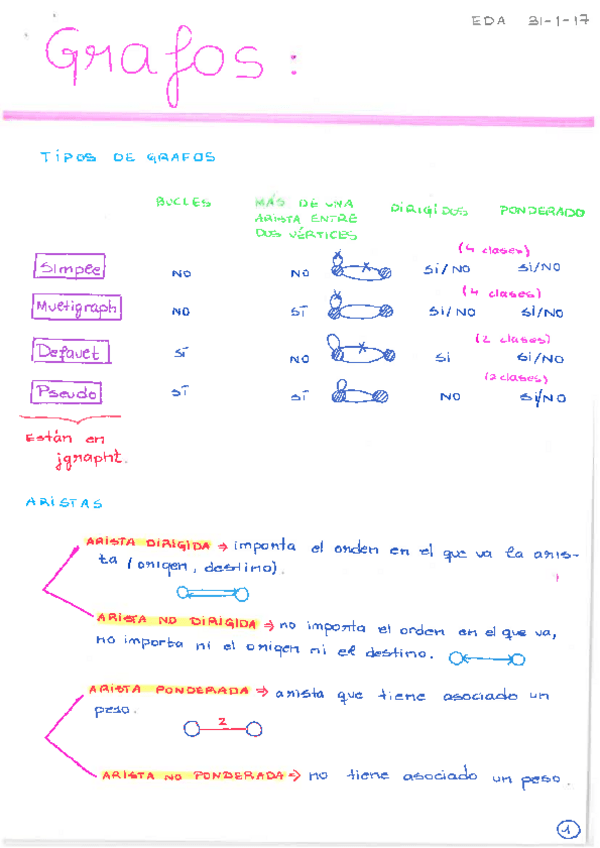 EDA 31-1-17
Grafos:
TIPOS DE GRAFOS
BUCLES
MÁS DE UNA
ARISTA ENTRE
DOS VÉRTICES
DIRIGIDOS
PONDERADO
(4 clases)
Simple NO NO SI/NO SI/NO
(4 clases)
Multigraph NO SÍ SI/NO SI/NO
(2 clases)
Default SÍ NO SI SI/NO
(2 clases)
Pseudo SÍ SÍ NO SI/NO
Están en
jgrapht.
ARISTAS
ARISTA DIRIGIDA → importa el orden en el que va la aris-
ta (origen, destino).
ARISTA NO DIRIGIDA → no importa el orden en el que va,
no importa ni el origen ni el destino.
ARISTA PONDERADA → arista que tiene asociado un
peso.
2
ARISTA NO PONDERADA → no tiene asociado un peso.
1